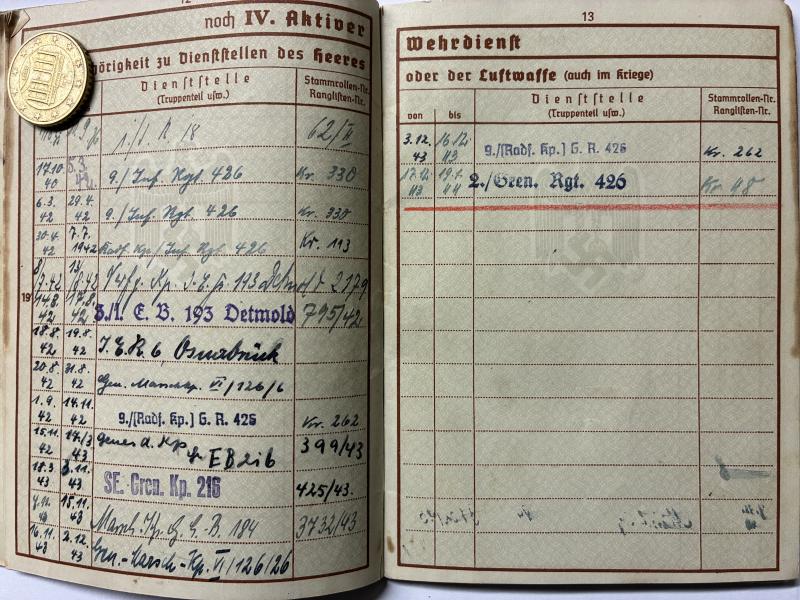 noch IV. Aktiver
örigkeit zu Dienststellen des Heeres
Dienststelle
(Truppenteil usw.)
Stammrollen-Nr.
Ranglisten-Nr.
62/II
17.10.
40
9./Inf. Rgt. 426
Kr. 330
6.3.
42
29.4.
42
9./Inf. Rgt. 426
Kr. 330
30.4.
42
7.7.
1942
Radf. Kp./Inf. Rgt. 426
Kr. 113
193 Detmold 2179
19
14.8.
42
17.8.
42
3./I. E. B. 193 Detmold
795/42
18.8.
42
19.8.
42
I.E.R. 6, Osnabrück
20.8.
42
31.8.
42
Gen. Marschkp. VI/126/6
1.9.
42
14.11.
42
9./(Radf. Kp.) G. R. 426
Kr. 262
15.11.
42
genes d. Kp
399/43
18.3.
43
43
SE. Gren. Kp. 216
425/43.
15.11.
43
184
3732/43
16.11.
43
2.12.
43
Gren.-Marsch-Kp. VI/126/26
13
Wehrdienst
oder der Luftwaffe (auch im Kriege)
von
bis
Dienststelle
(Truppenteil usw.)
Stammrollen-Nr.
Ranglisten-Nr.
3.12.
43
16.12.
43
9./(Radf. Kp.) G. R. 426
Kr. 262
17.12.
43
19.1.
44
2./Gren. Rgt. 426
Kr 48